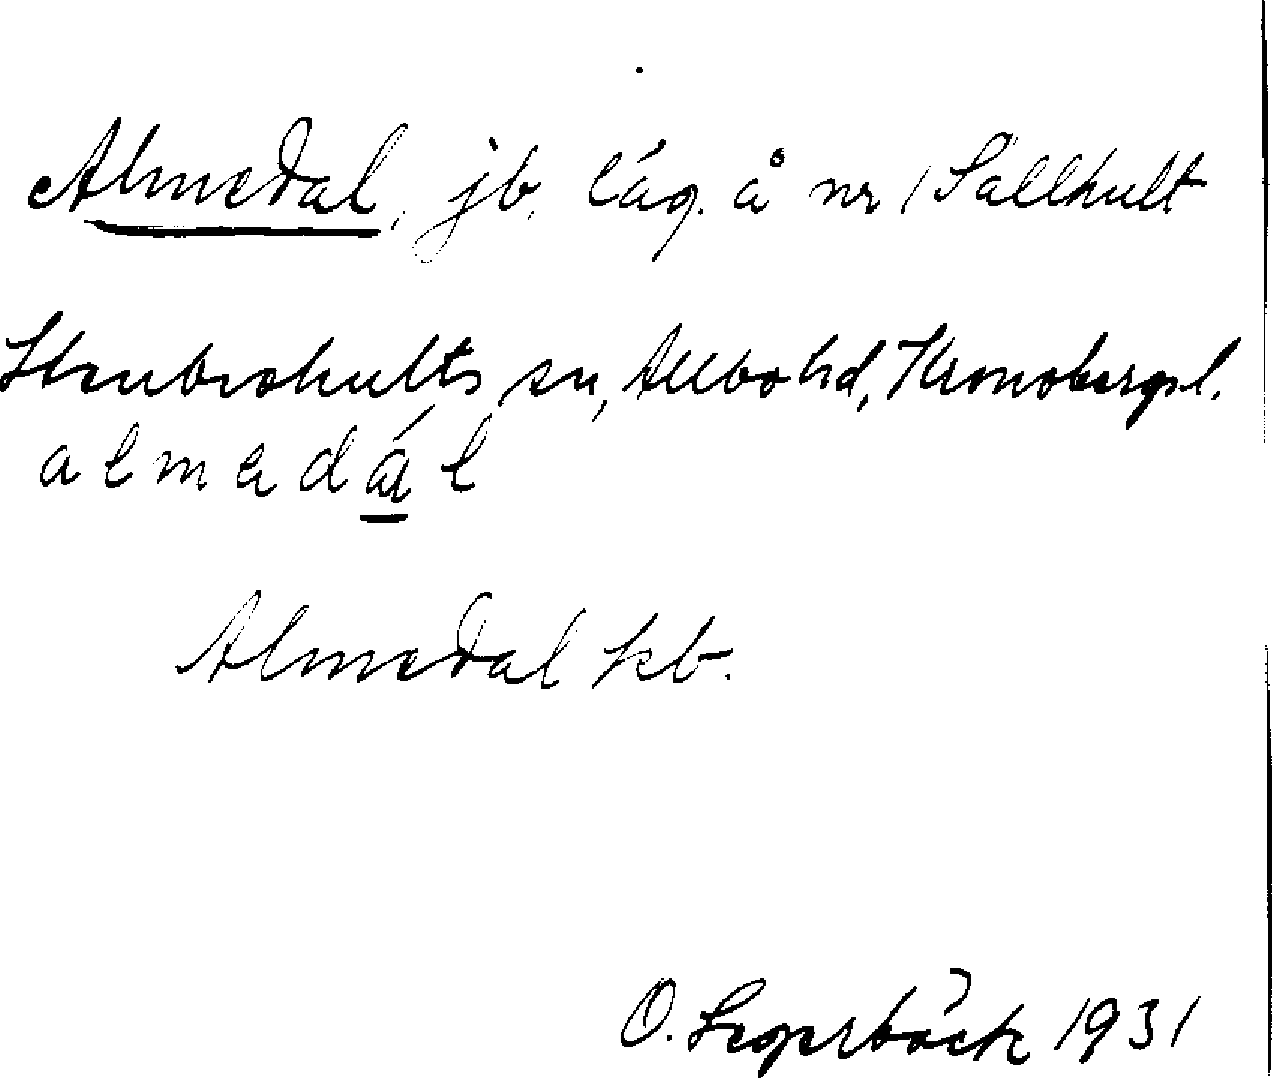 Almedal, jb, läg. å nr 1 Sällhult
Stenbrohults sn, Allbo hd, Kronobergs l.
a l m e d á l
Almedal kb.
O. Segerbäck 1931